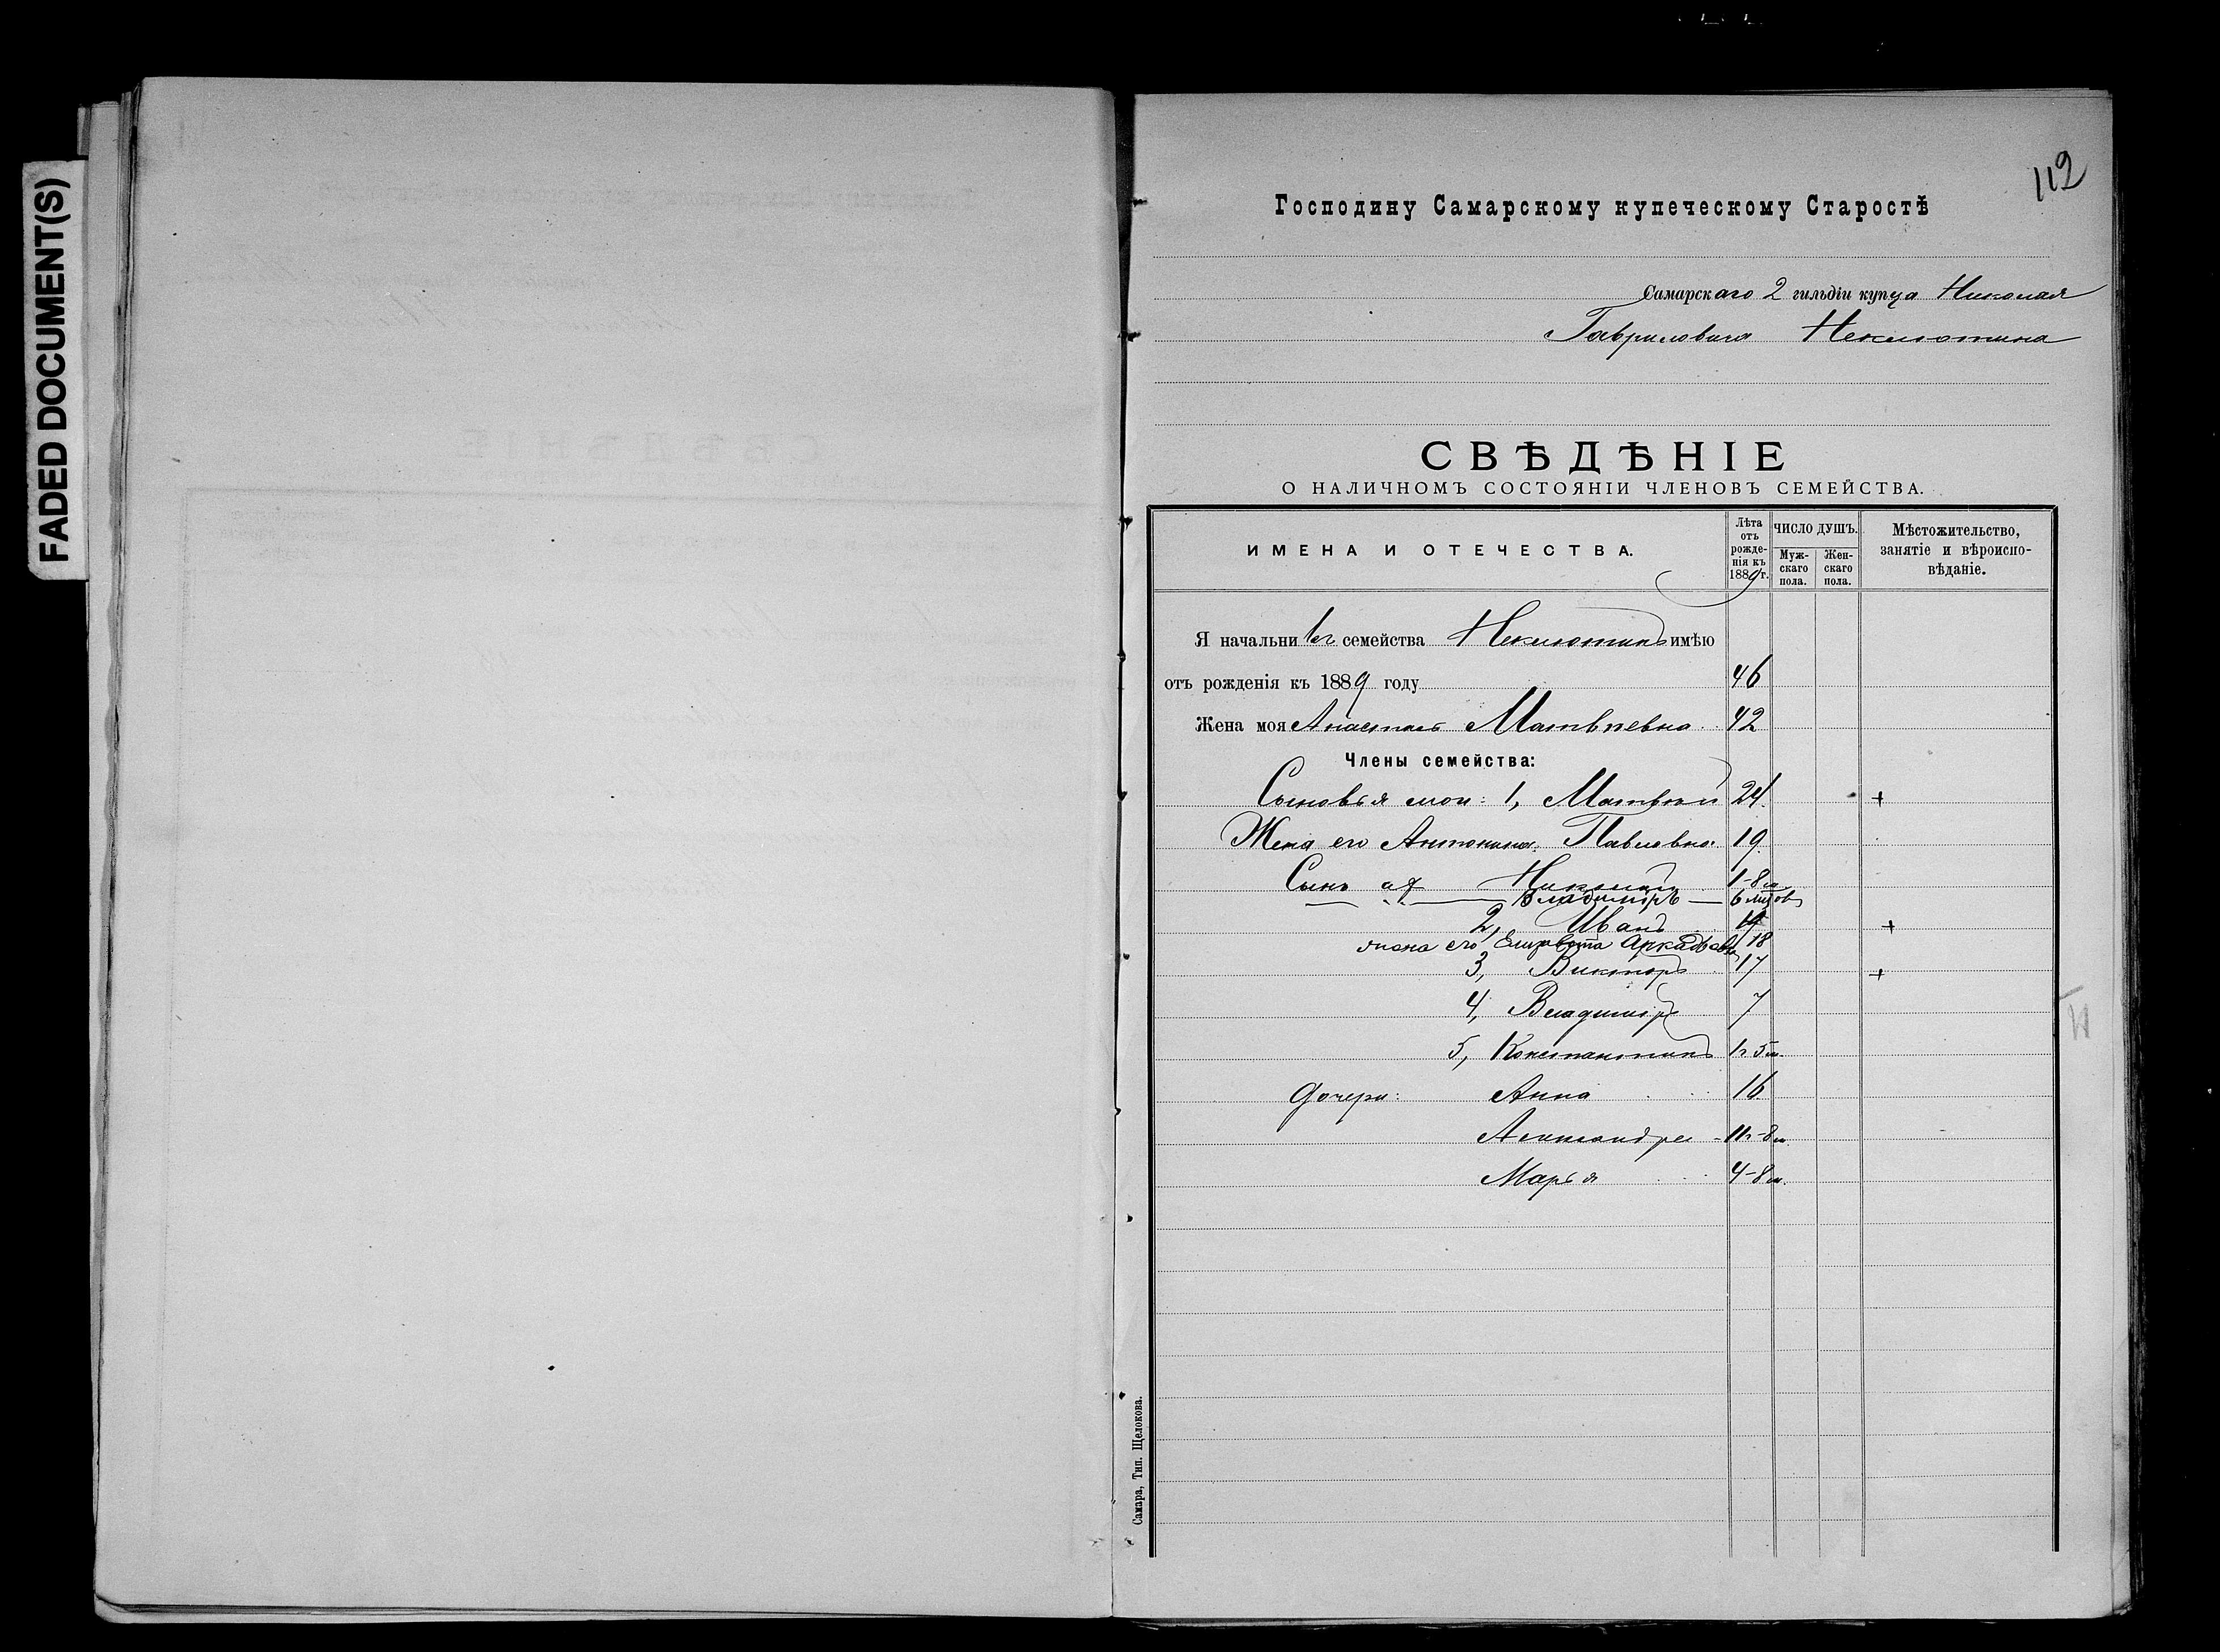 FADED DOCUMENT(S)
112
Господину Самарскому купеческому Старостѣ
Самарскаго 2 гильдіи купца Николая
Гавриловича Неклютина
СВѢДѢНІЕ
О НАЛИЧНОМЪ СОСТОЯНІИ ЧЛЕНОВЪ СЕМЕЙСТВА.
ИМЕНА И ОТЕЧЕСТВА.
Лѣта отъ рожде-нія къ 1889 г.
ЧИСЛО ДУШЪ.
Муж-скаго пола.
Жен-скаго пола.
Мѣстожительство, занятіе и вѣроиспо-вѣданіе.
Я начальникъ семейства Неклютинъ имѣю
отъ рожденія къ 1889 году 46
Жена моя Анастасія Матвѣевна 42
Члены семейства:
Сыновья мои: 1, Матвѣй 24. +
Жена его Антонина Павловна 19
Сынъ Николай 1-8 м
Владиміръ 6 мцов
2, Иванъ 19 +
жена его Елизавета Аркадьевна 18
3, Викторъ 17 +
4, Владиміръ 7
5, Константинъ 1г 5м.
Дочери: Анна 16
Александра 11г-8м.
Марья 4-8м.
Самара, Тип. Щелокова.